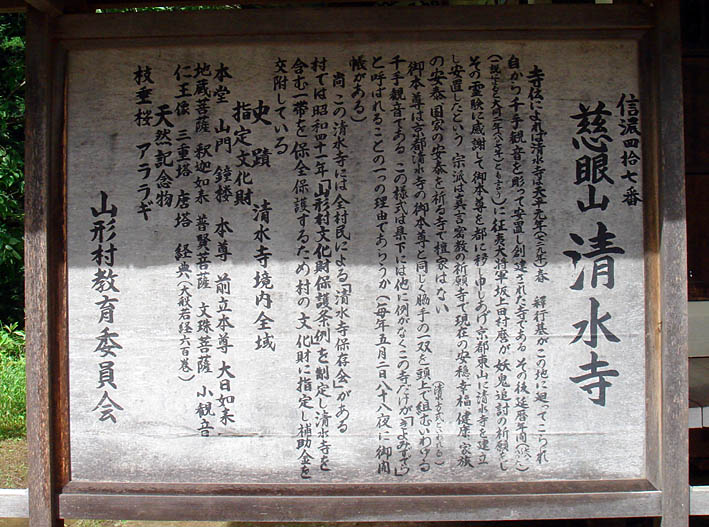 信濃四拾七番
慈眼山 清水寺
寺伝によれば清水寺は天平元年(七二九年)春 釋行基がこの地に廻ってこられ
自から千手観音を彫って安置し創建された寺である その後延暦年間
(一説によると大同二年八〇七年とも言う)に征夷大将軍坂上田村麿が妖鬼追討の祈願をし
その霊験に感謝して御本尊を都に移し申しあげ京都東山に清水寺を建立
し安置したという 宗派は真言密教の祈願寺で現在の安穏幸福 健康 家族
の安泰 国家の安泰を祈る寺で檀家はない
御本尊は京都清水寺の御本尊と同じく脇手の一双を頭上で組むいわゆる
千手観音である この様式は県下には他に例がなくこの寺だけが「きよみずさん」
と呼ばれることの一つの理由であろうか(毎年五月二日八十八夜に御開
帳がある)
尚 この清水寺には全村民による「清水寺保存会」がある
村では昭和四十一年「山形村文化財保護条例」を制定し清水寺を
含む一帯を保全保護するため村の文化財に指定し補助金を
交附している
史蹟 清水寺境内全域
指定文化財
本堂 山門 鐘楼 本尊 前立本尊 大日如来
地蔵菩薩 釈迦如来 普賢菩薩 文珠菩薩 小観音
仁王像 三重塔 唐塔 経典(大般若経六百巻)
天然記念物
枝垂桜 アララギ
山形村教育委員会